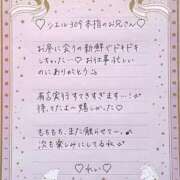 ♡ シエル309本指のお兄さん ♡
お昼に会うの新鮮でドキドキ
しちゃた…♡ お仕事忙しい
のにありがとう
有言実行すてきすぎます…!
待ってたよ〜 嬉しかった♡
もももも、また触らせて…
次も楽しみにしてるね
♡ れい ♡